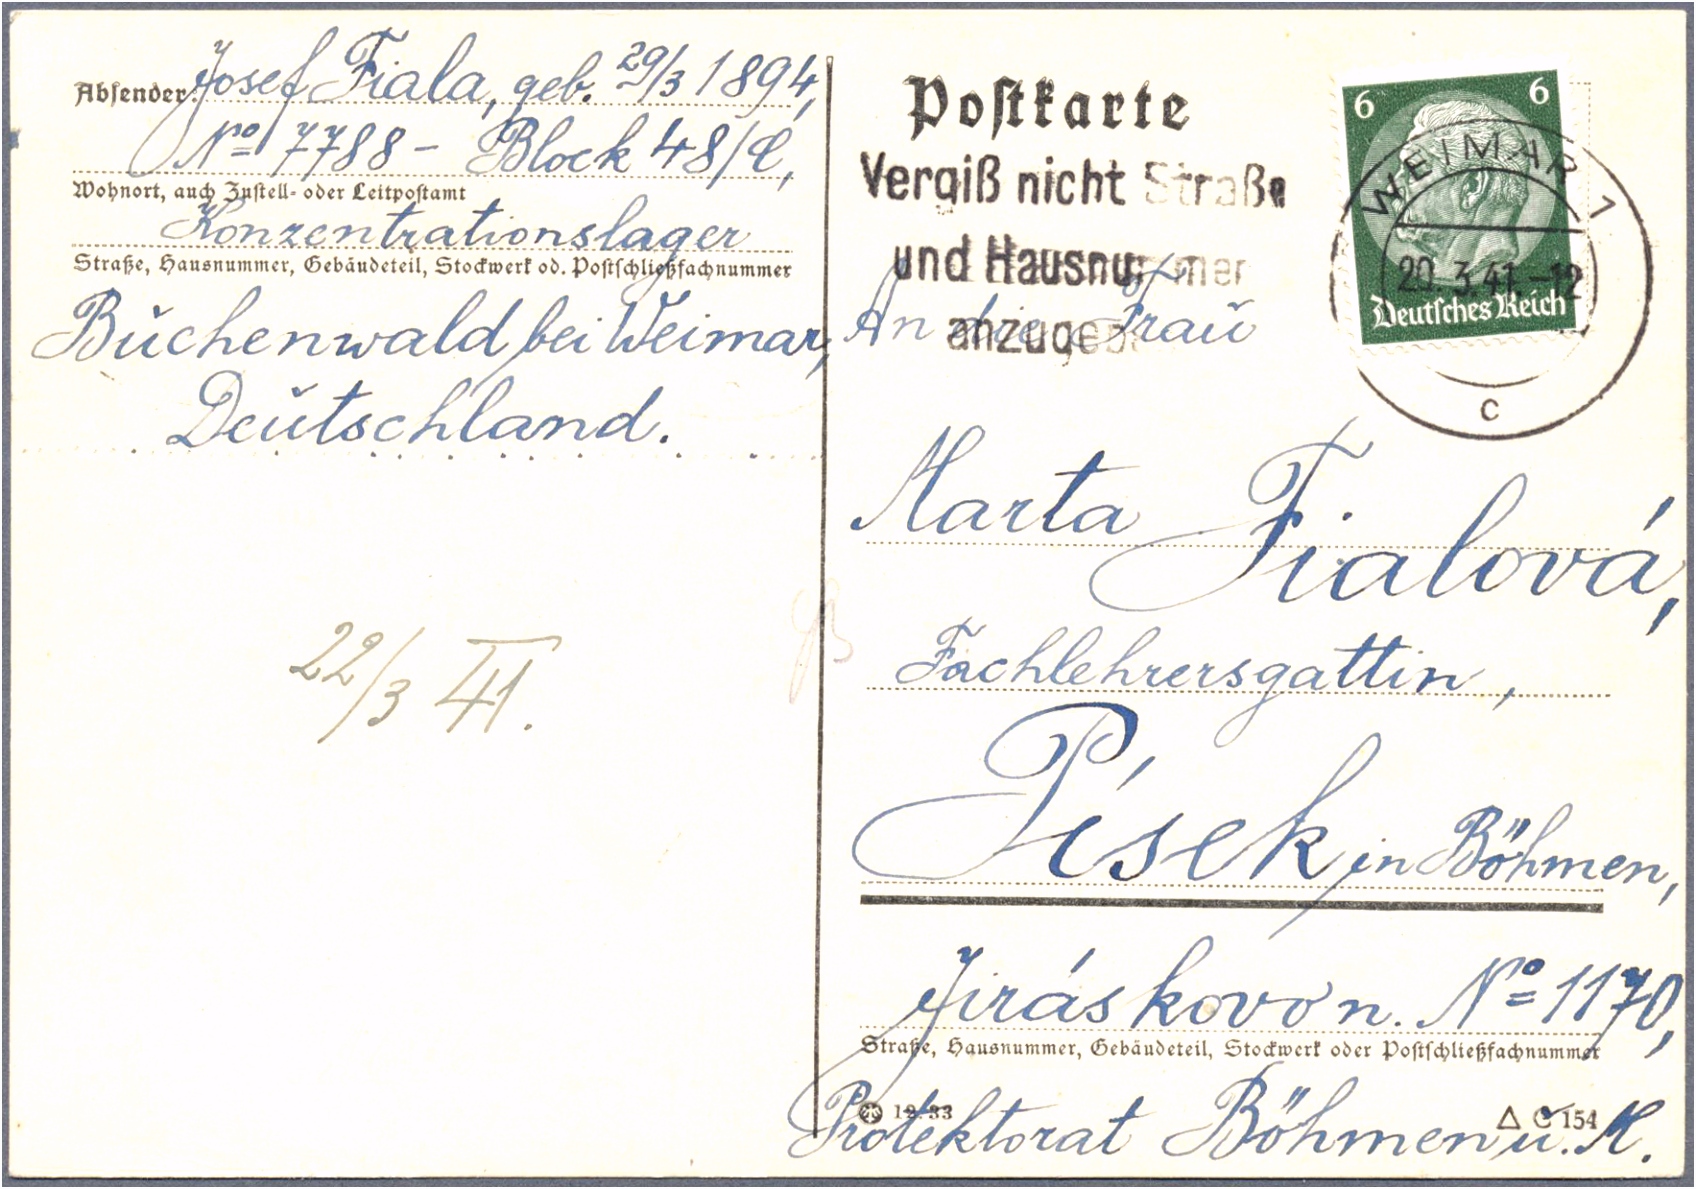 Absender: Josef Fiala, geb. 29/3 1894,
No 7788 - Block 48/C,
Wohnort, auch Zustell- oder Leitpostamt
Konzentrationslager
Straße, Hausnummer, Gebäudeteil, Stockwerk od. Postschließfachnummer
Buchenwald bei Weimar,
Deutschland.
22/3 41.
Postkarte
Vergiß nicht Straße
und Hausnummer
anzugeben
6 6
Deutsches Reich
WEIMAR 1
20.3.41.-12
c
An die Frau
Marta Fialová,
Fachlehrersgattin,
Písek in Böhmen,
Jiráskovo n. No 1170,
Straße, Hausnummer, Gebäudeteil, Stockwerk oder Postschließfachnummer
Protektorat Böhmen u. M.
12. 33
△ C 154